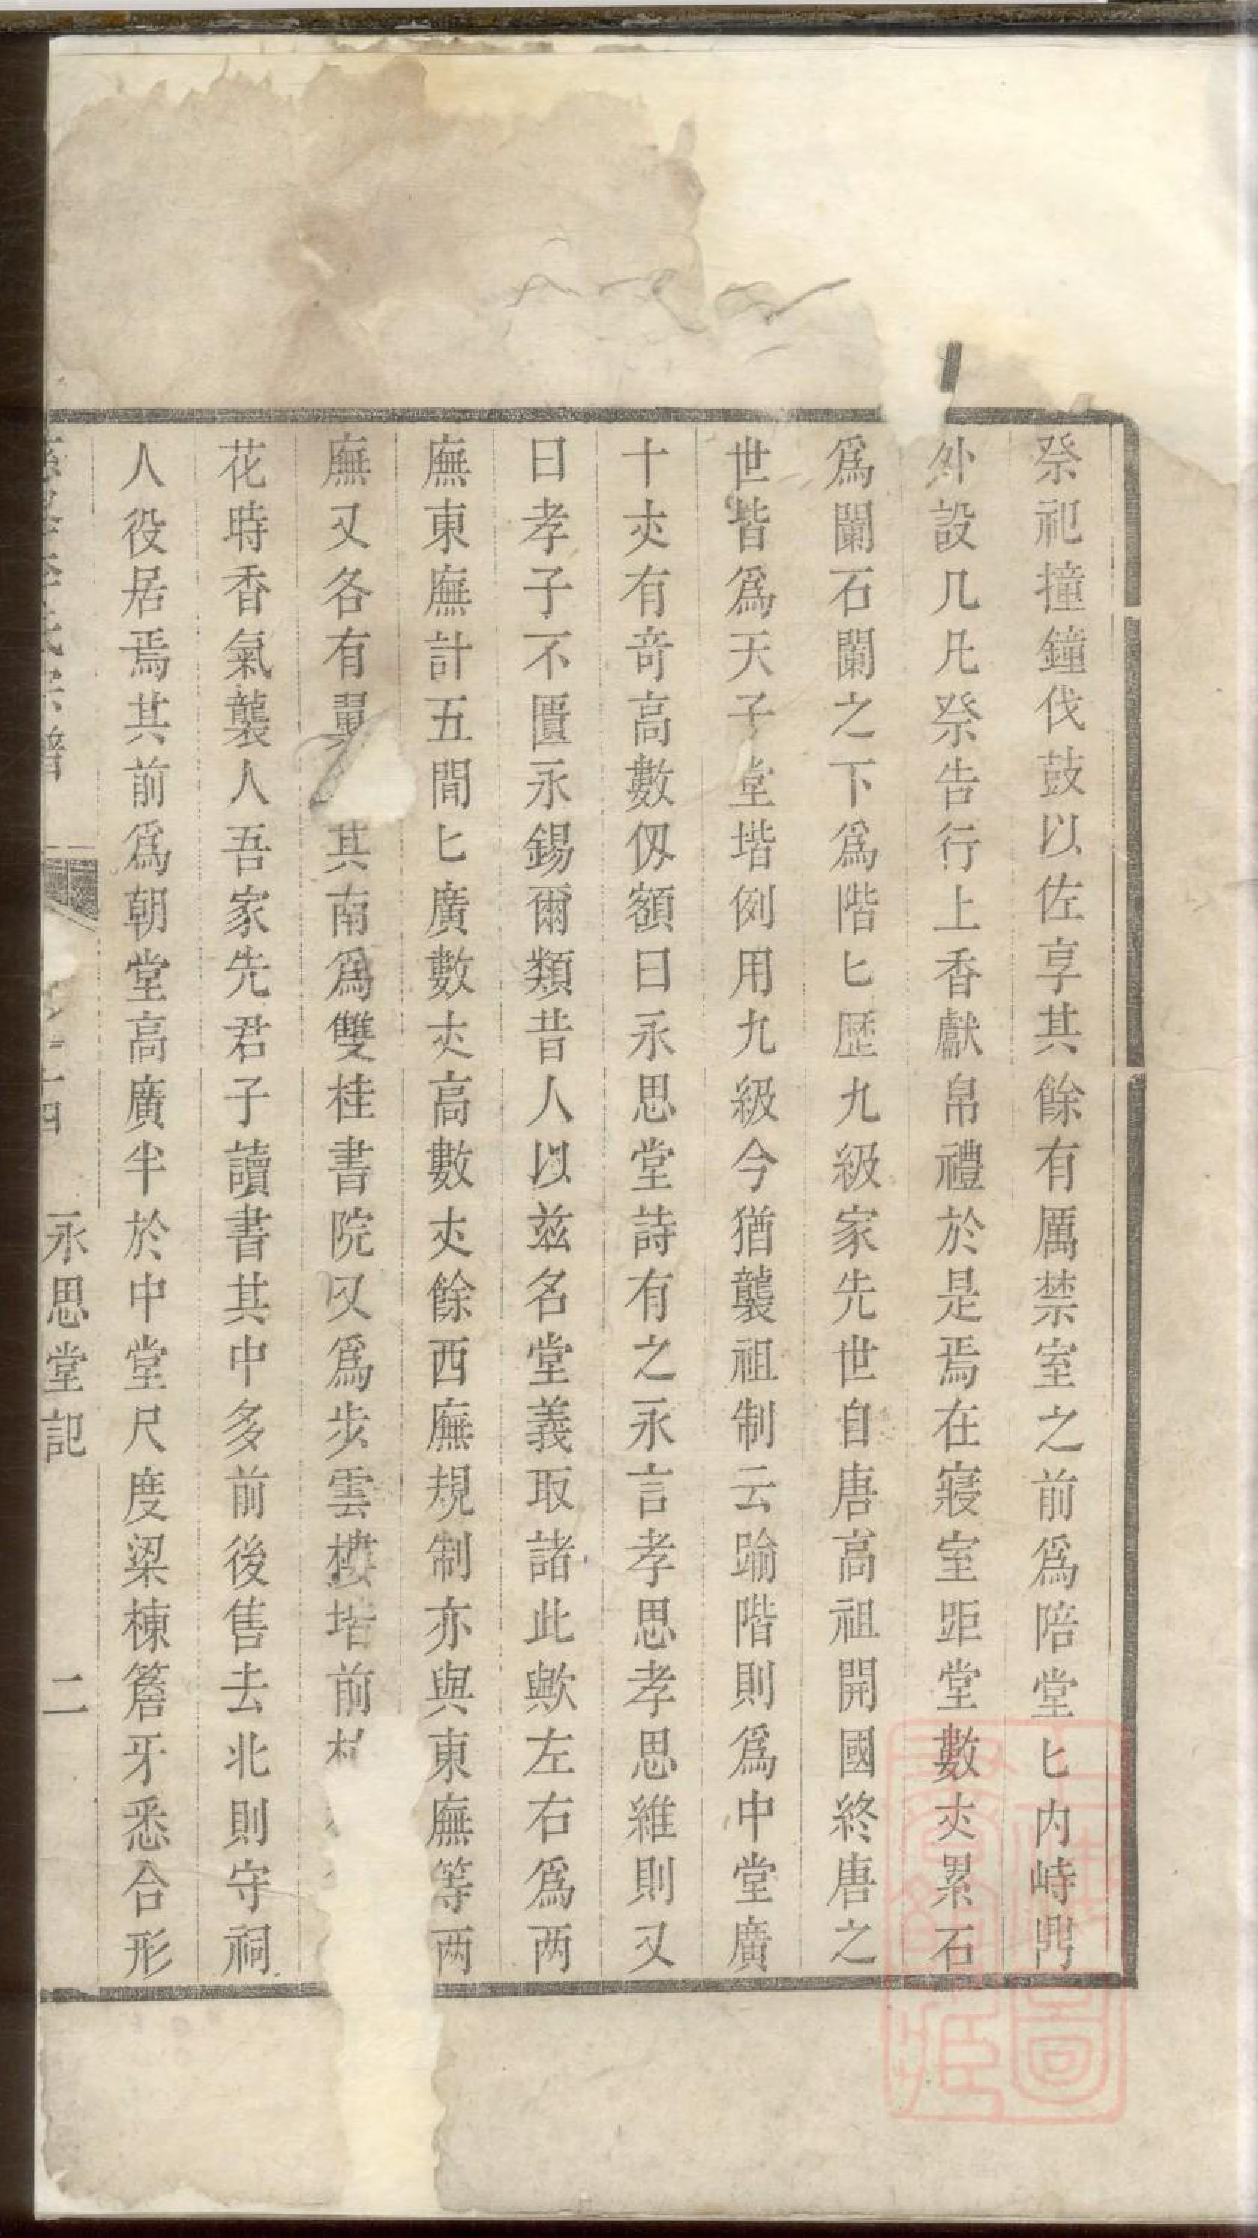 祭祀撞鐘伐鼓以佐享其餘有厲禁室之前爲陪堂匕内峙鼎
外設几凡祭告行上香獻帛禮於是焉在寢室距堂數丈累石
爲闌石闌之下爲階匕歷九級家先世自唐高祖開國終唐之
世皆爲天子堂堦例用九級今猶襲祖制云踰階則爲中堂廣
十丈有竒高數仭額曰永思堂詩有之永言孝思孝思維則又
曰孝子不匱永錫爾類昔人以兹名堂義取諸此歟左右爲两
廡東廡計五間匕廣數丈高數丈餘西廡規制亦與東廡等两
廡又各有翼其南爲雙桂書院又爲步雲樓堦前
花時香氣襲人吾家先君子讀書其中多前後售去北則守祠
人役居焉其前爲朝堂高廣半於中堂尺度梁棟簷牙悉合形
氏宗譜 十四 永思堂記 二